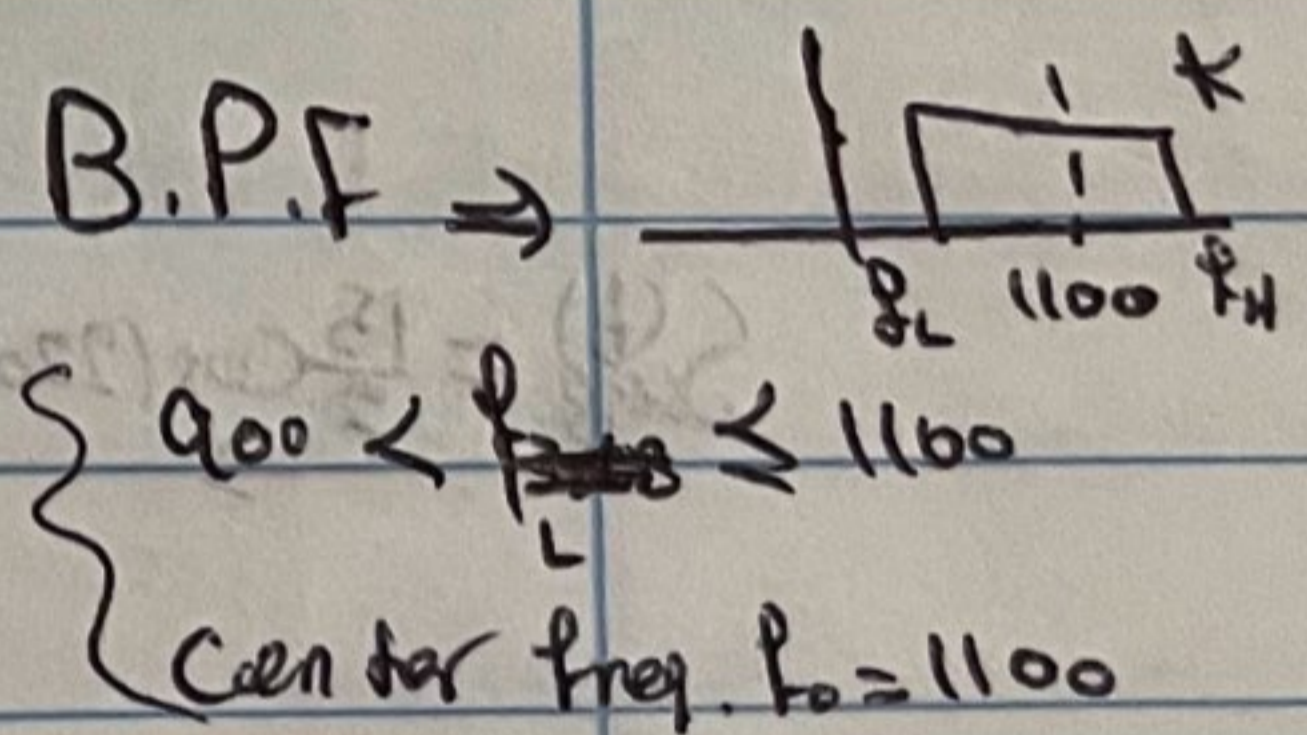 B.P.F ⇒
K
f_L 1100 f_H
900 < f_L ≤ 1100
Center freq. f_0 = 1100